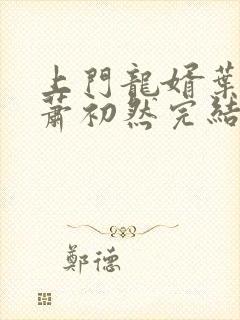 上門龍婿葉
蕭初然完結
鄭德